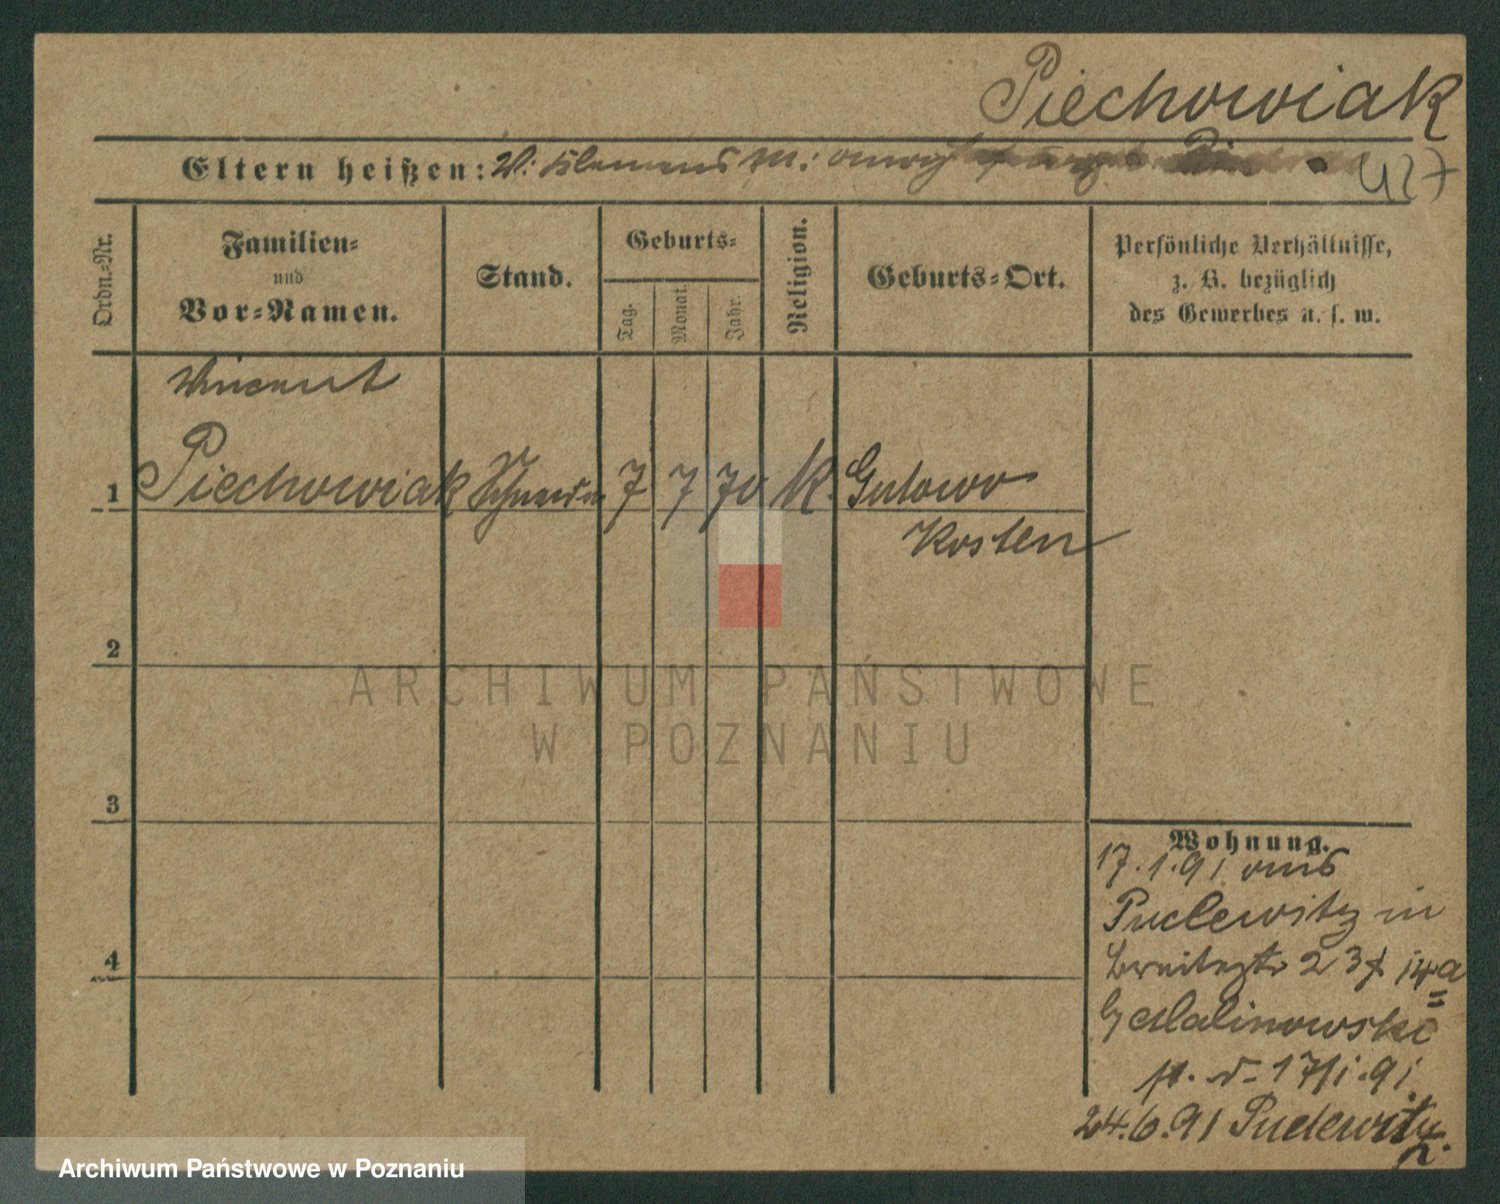 Piechowiak
427
Eltern heißen: V: Klemens M:
Ordn.-Nr.
Familien-
und
Vor-Namen.
Stand.
Geburts-
Tag.
Monat.
Jahr.
Religion.
Geburts-Ort.
Persönliche Verhältnisse,
z. B. bezüglich
des Gewerbes u. s. w.
Vincent
1 Piechowiak Schneider 7 7 70 K. Gutowo
Kosten
2
3
4
Wohnung.
17.1.91 aus
Pudewitz in
Breitestr 23 14a
Malinowski
17/1.91.
24.6.91 Pudewitz
ARCHIWUM PAŃSTWOWE
W POZNANIU
Archiwum Państwowe w Poznaniu